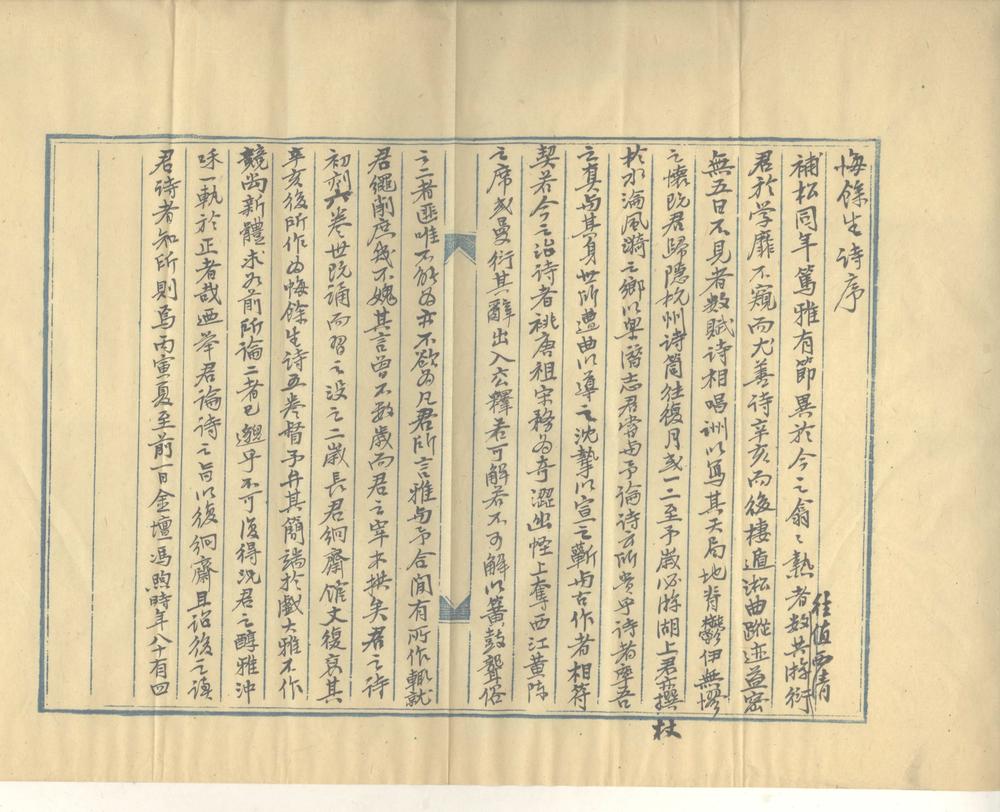 悔餘生詩序
補松同年篤雅有節異於今之翕翕熱者數共游衍
往值西清
君於学靡不窺而尤善詩辛亥而後棲遁淞曲蹤迹益密
無五日不見者數賦詩相唱詶以寫其天局地脊鬱伊無憀
之懷既君歸隱杭州詩筒往復月或一二至予歲必游湖上君輒撰
杖
於水淪風漪之鄉以罄齋志君嘗與予論詩云所貴乎詩者率吾
之真與其身世所遭曲以導之沈摯以宣之蘄與古作者相符
契若今之治詩者祧唐祖宋務為奇澀幽怪上奪西江黃陳
之席或曼衍其辭出入玄釋若可解若不可解以簧鼓聾俗
之二者匪唯不能為亦不欲為凡君所言雅與予合閒有所作輒就
君繩削庶幾不媿其言曾不數歲而君之宰木拱矣君之詩
初刻六卷世既誦而習之沒之二歲長君絅齋館丈復裒其
辛亥後所作為悔餘生詩五卷督予弁其簡端於戲大雅不作
競尚新體求如前所論二者已邈乎不可復得況君之醇雅沖
咊一執於正者哉迺举君論詩之旨以復絅齋且詒後之讀
君詩者知所則焉丙寅夏至前一日金壇馮煦時年八十有四